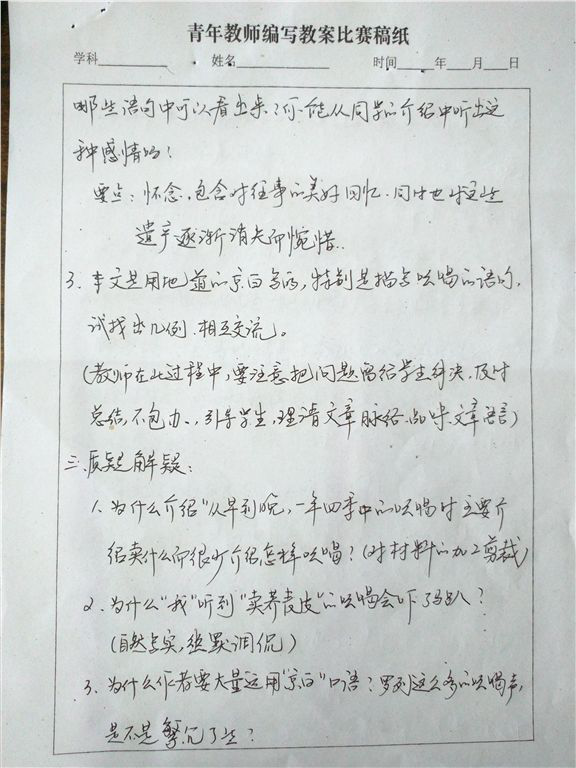 青年教师编写教案比赛稿纸
学科 姓名 时间 年 月 日
哪些语句中可以看出来?你能从同学的介绍中听出这
种感情吗?
要点:怀念,包含对往事的美好回忆.同时也对这些
遗产逐渐消失而惋惜.
3.本文是用地道的京白写的,特别是描写吆喝的语句,
试找出几例.相互交流。
(教师在此过程中,要注意把问题留给学生解决,及时
总结,不包办.,引导学生,理清文章脉络.品味文章语言)
三.质疑解疑:
1.为什么介绍“从早到晚,一年四季中的吆喝时主要介
绍卖什么而很少介绍怎样吆喝?(对材料的加工剪裁)
2.为什么“我”听到“卖荞麦皮”的吆喝会吓了一跳?
(自然写实,幽默调侃)
3.为什么作者要大量运用“京白”口语?罗列这么多的吆喝声,
是不是繁冗了些?